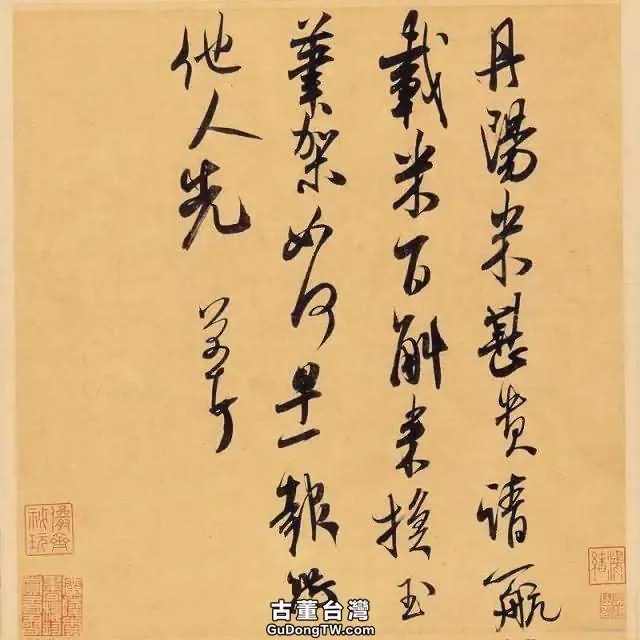 丹陽米甚貴請一航
載米百斛來換玉
筆架如何早一報恐
他人先
芾頓首
古董台灣
GuDongTW.com